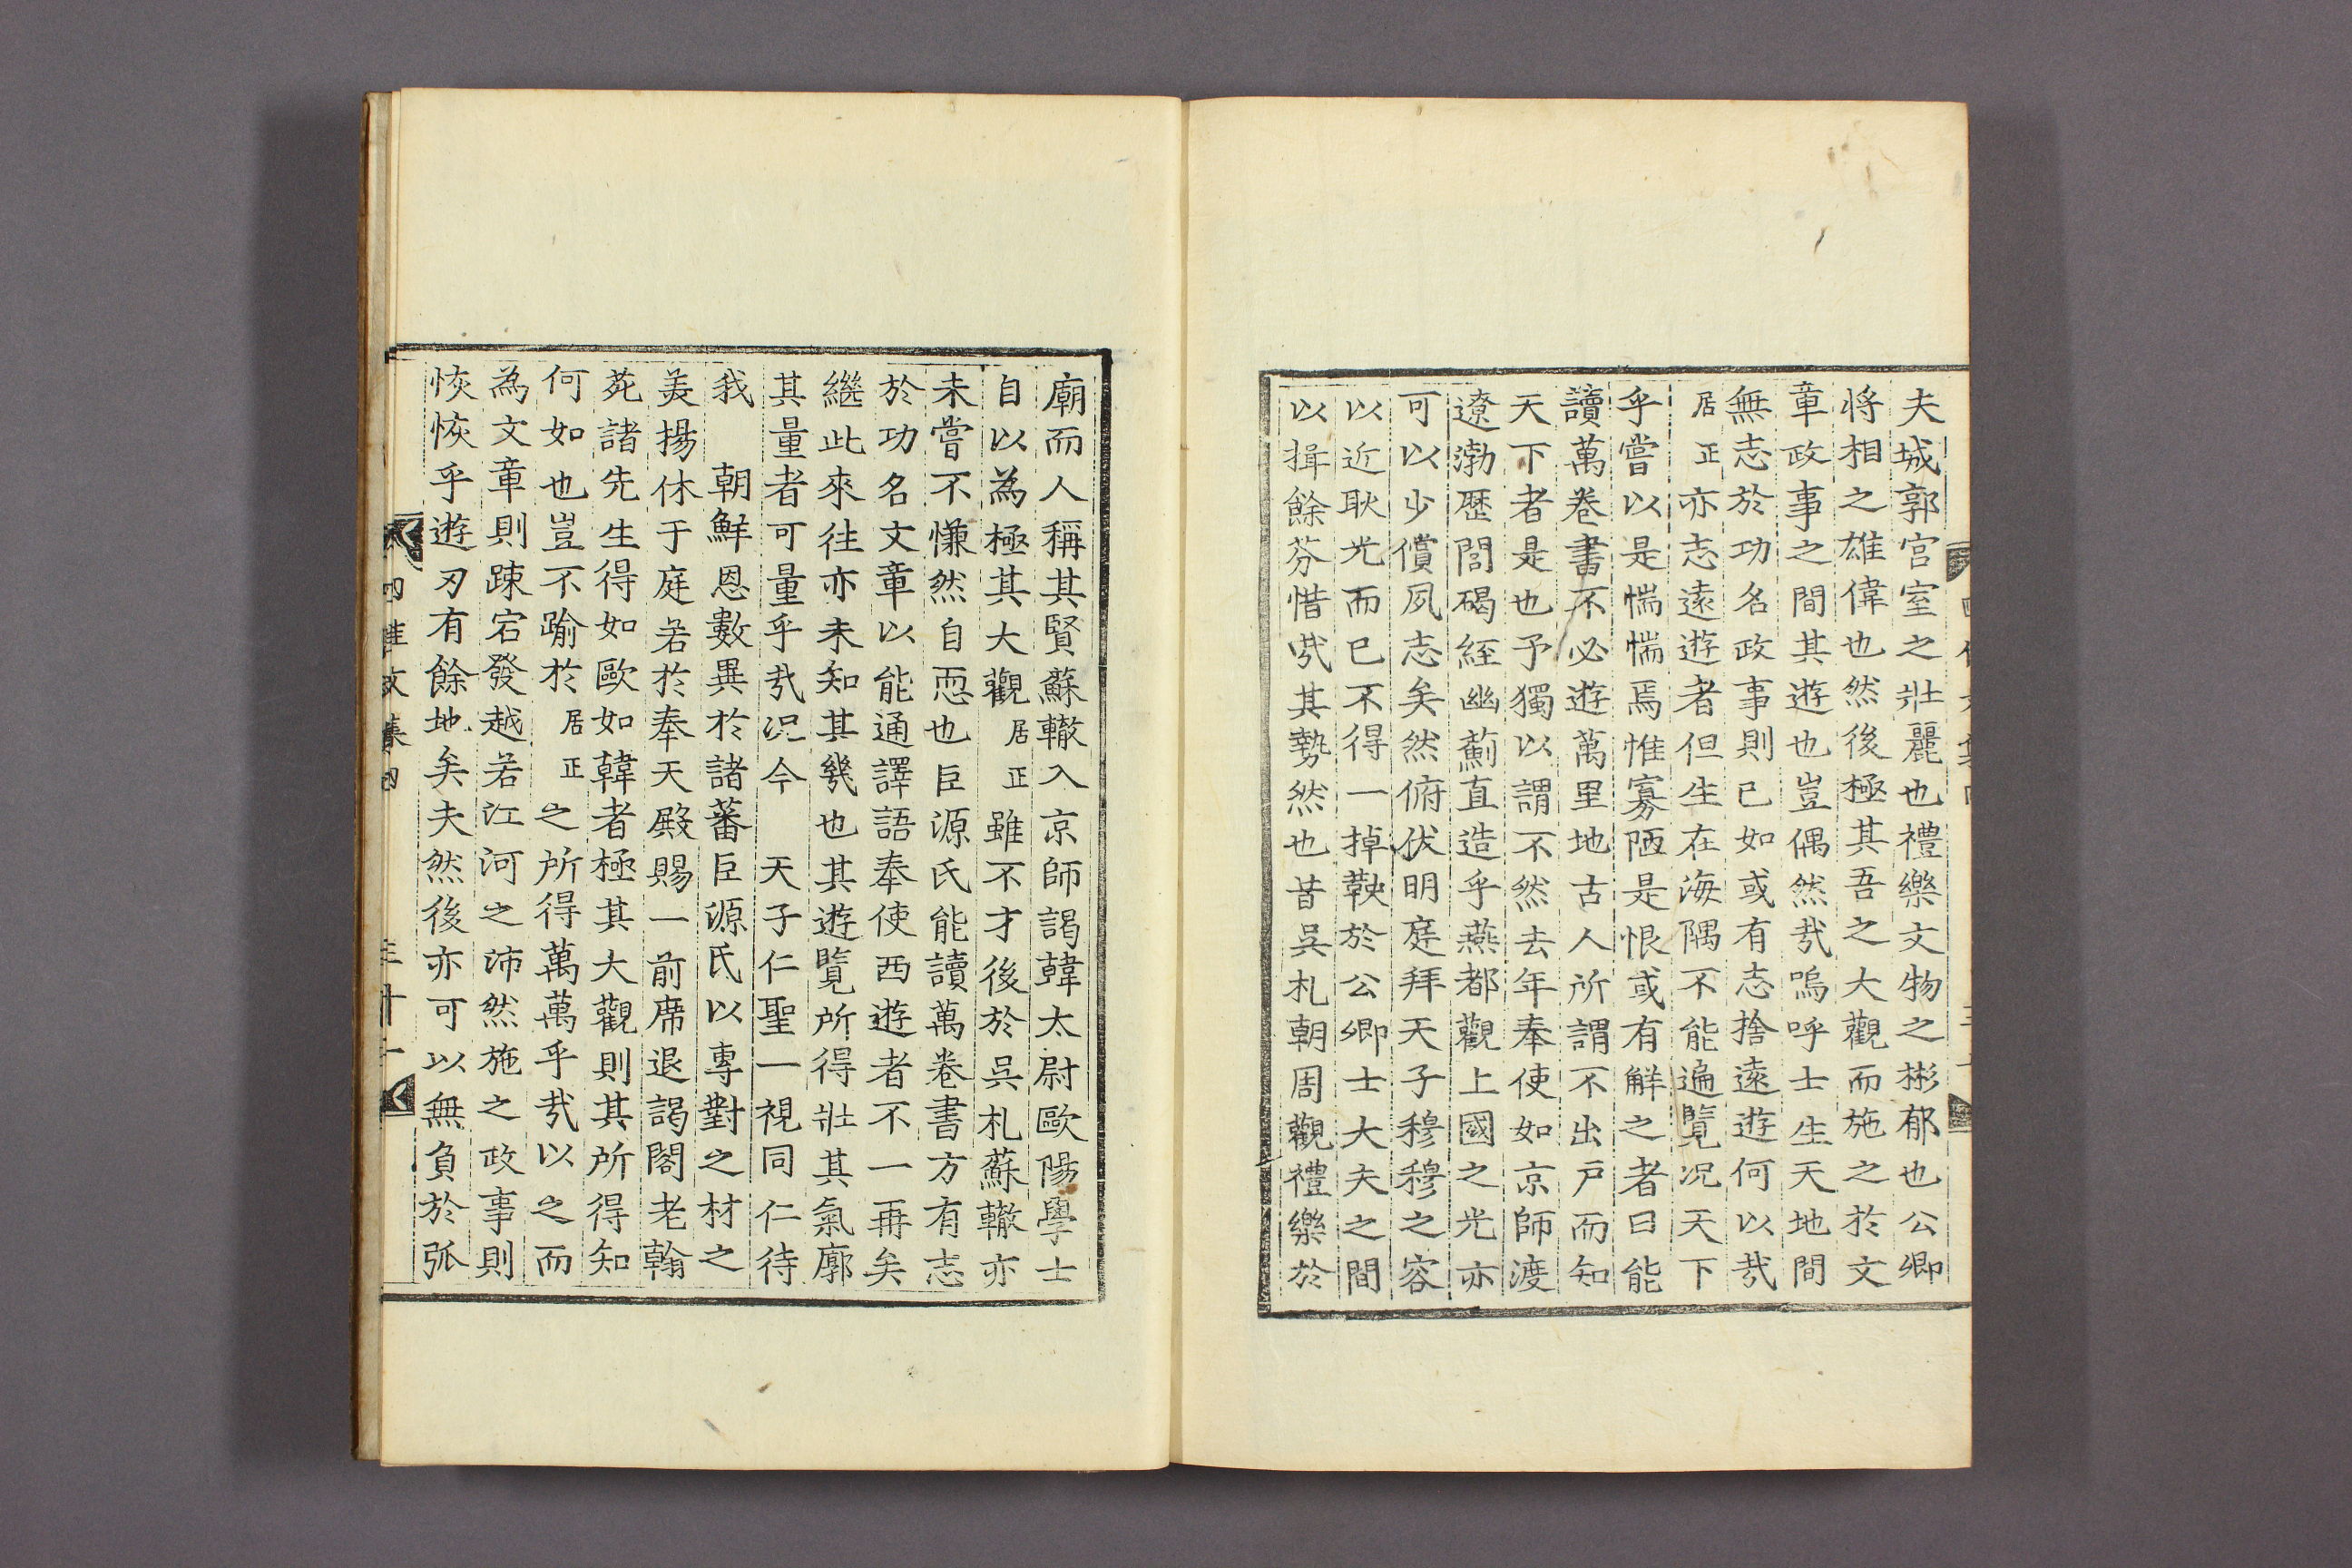 夫城郭宮室之壯麗也禮樂文物之彬郁也公卿
將相之雄偉也然後極其吾之大觀而施之於文
章政事之間其遊也豈偶然㢤嗚呼士生天地間
無志於功名政事則已如或有志捨遠遊何以㢤
居正亦志遠遊者但生在海隅不能遍覽况天下
乎嘗以是惴惴焉惟寡陋是恨或有觧之者曰能
讀萬卷書不必遊萬里地古人所謂不出戶而知
天下者是也予獨以謂不然去年奉使如京師渡
遼渤歷閭碣經幽薊直造乎燕都觀上國之光亦
可以少償夙志矣然俯伏明庭拜天子穆穆之容
以近耿光而已不得一掉鞅於公卿士大夫之間
以揖餘芬惜㢤其勢然也昔吳札朝周觀禮樂於
廟而人稱其賢蘇轍入京師謁韓太尉歐陽學士
自以為極其大觀居正雖不才後於吳札蘇轍亦
未嘗不慊然自恧也臣源氏能讀萬卷書方有志
於功名文章以能通譯語奉使西遊者不一再矣
繼此來往亦未知其幾也其遊覽所得壯其氣廓
其量者可量乎㢤况今 天子仁聖一視同仁待
我 朝鮮恩數異於諸蕃臣源氏以專對之材之
美揚休于庭若於奉天殿賜一前席退謁閣老翰
苑諸先生得如歐如韓者極其大觀則其所得知
何如也豈不踰於居正之所得萬萬乎㢤以之而
為文章則踈宕發越若江河之沛然施之政事則
恢恢乎遊刃有餘地矣夫然後亦可以無負於弧
四佳文集四 三十一